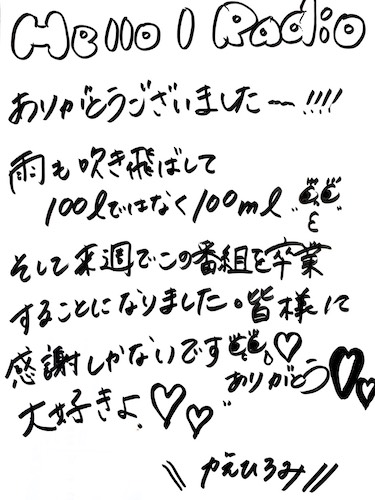 Hello! Radio
ありがとうございました〜!!!!
雨も吹き飛ばして
100ℓではなく100mℓ
そして来週でこの番組を卒業
することになりました。皆様に
感謝しかないです
ありがとう
大好きよ
\\ がえひろみ //